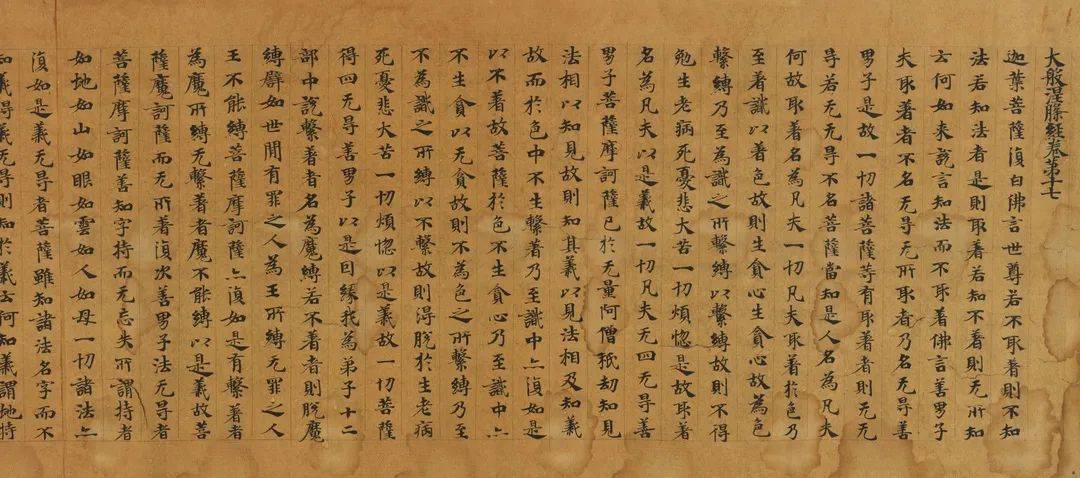 大般涅槃經卷第十七
迦葉菩薩復白佛言世尊若不取著則不知
法若知法者是則取著若知不著則无所知
云何如來說言知法而不取著佛言善男子
夫取著者不名无㝵无所取著乃名无㝵善
男子是故一切諸菩薩等有取著者則无无
㝵若无无㝵不名菩薩當知是人名為凡夫
何故取著名為凡夫一切凡夫取著於色乃
至著識以著色故則生貪心生貪心故為色
繫縛乃至為識之所繫縛以繫縛故則不得
勉生老病死憂悲大苦一切煩惱是故取著
名為凡夫以是義故一切凡夫无四无㝵善
男子菩薩摩訶薩已於无量阿僧祇劫知見
法相以知見故則知其義以見法相及知義
故而於色中不生繫著乃至識中亦復如是
以不著故菩薩於色不生貪心乃至識中亦
不生貪以无貪故則不為色之所繫縛乃至
不為識之所縛以不繫故則得脫於生老病
死憂悲大苦一切煩惱以是義故一切菩薩
得四无㝵善男子以是因緣我為弟子十二
部中說繫著者名為魔縛若不著者則脫魔
縛譬如世間有罪之人為王所縛无罪之人
王不能縛菩薩摩訶薩亦復如是有繫著者
為魔所縛无繫著者魔不能縛以是義故菩
薩摩訶薩而无所著復次善男子法无㝵者
菩薩摩訶薩善知字持而无忘失所謂持者
如地如山如眼如雲如人如母一切諸法亦
復如是義无㝵者菩薩雖知諸法名字而不
知義得義无㝵則知於義云何知義謂地持